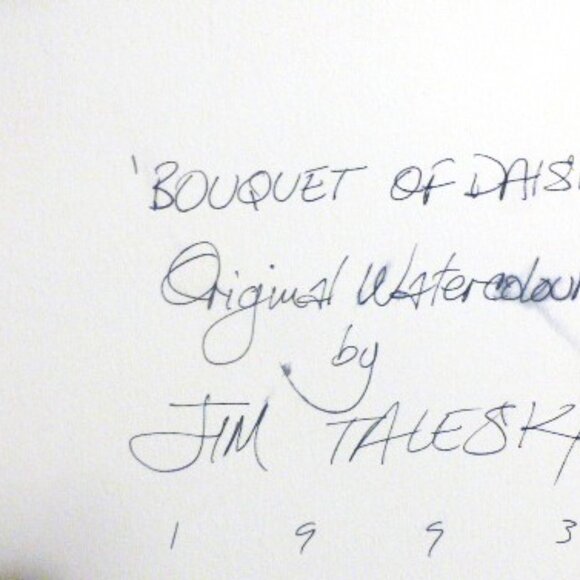 'BOUQUET OF DAIS
Original Watercolour
by
JIM TALESK
1 9 9 3